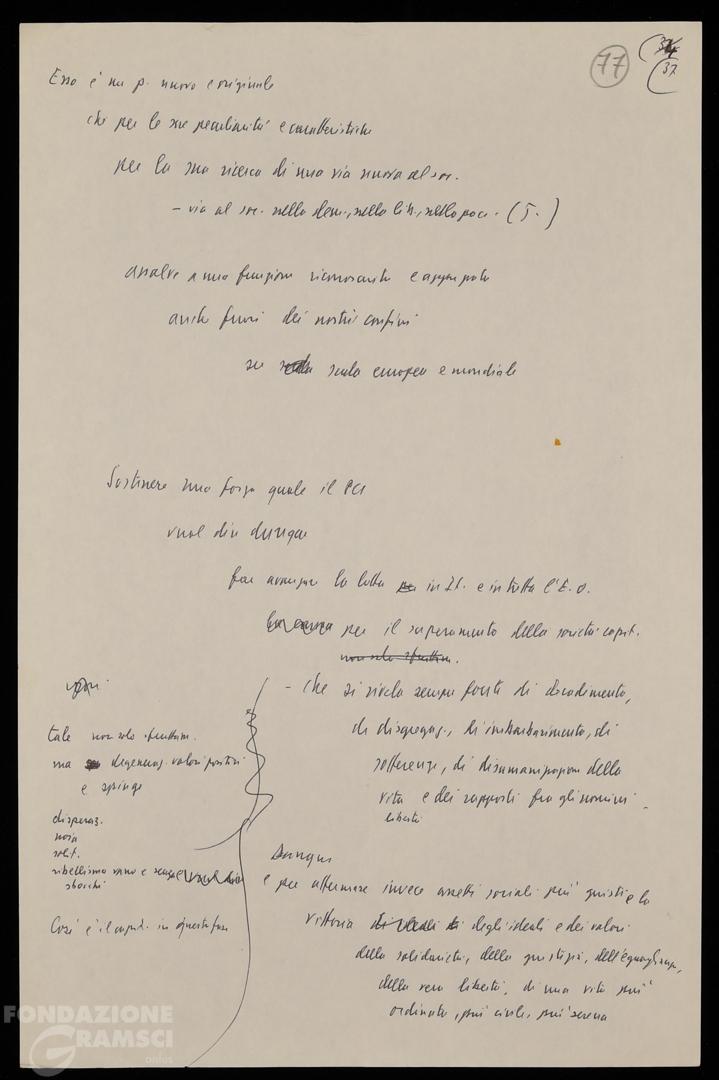 77
(34
(37
Esso è un p. nuovo e originale
che per le sue peculiarità e caratteristiche
per la sua ricerca di una via nuova al soc.
- via al soc. nella dem., nella lib., nella pace. (5.)
assolve a una funzione riconosciuta e apprezzata
anche fuori dei nostri confini
su scala europea e mondiale
Sostenere una forza quale il PCI
vuol dire dunque
far avanzare la lotta in It. e in tutta l'E. O.
per il superamento della società capit.
non solo sfruttam.
- che si rivela sempre fonte di decadimento,
di disgregaz., di imbarbarimento, di
sofferenze, di disumanizzazione della
vita e dei rapporti fra gli uomini.
libertà
tale non solo sfruttam.
ma degeneraz. valori positivi
e spinge
disperaz.
noia
solit.
ribellismo vano e senza
sbocchi
Così è il capit. in questa fase
Dunque
e per affermare invece assetti sociali più giusti e la
vittoria degli ideali e dei valori
della solidarietà, della giustizia, dell'eguaglianza,
della vera libertà, di una vita più
ordinata, più civile, più serena
FONDAZIONE
GRAMSCI
onlus